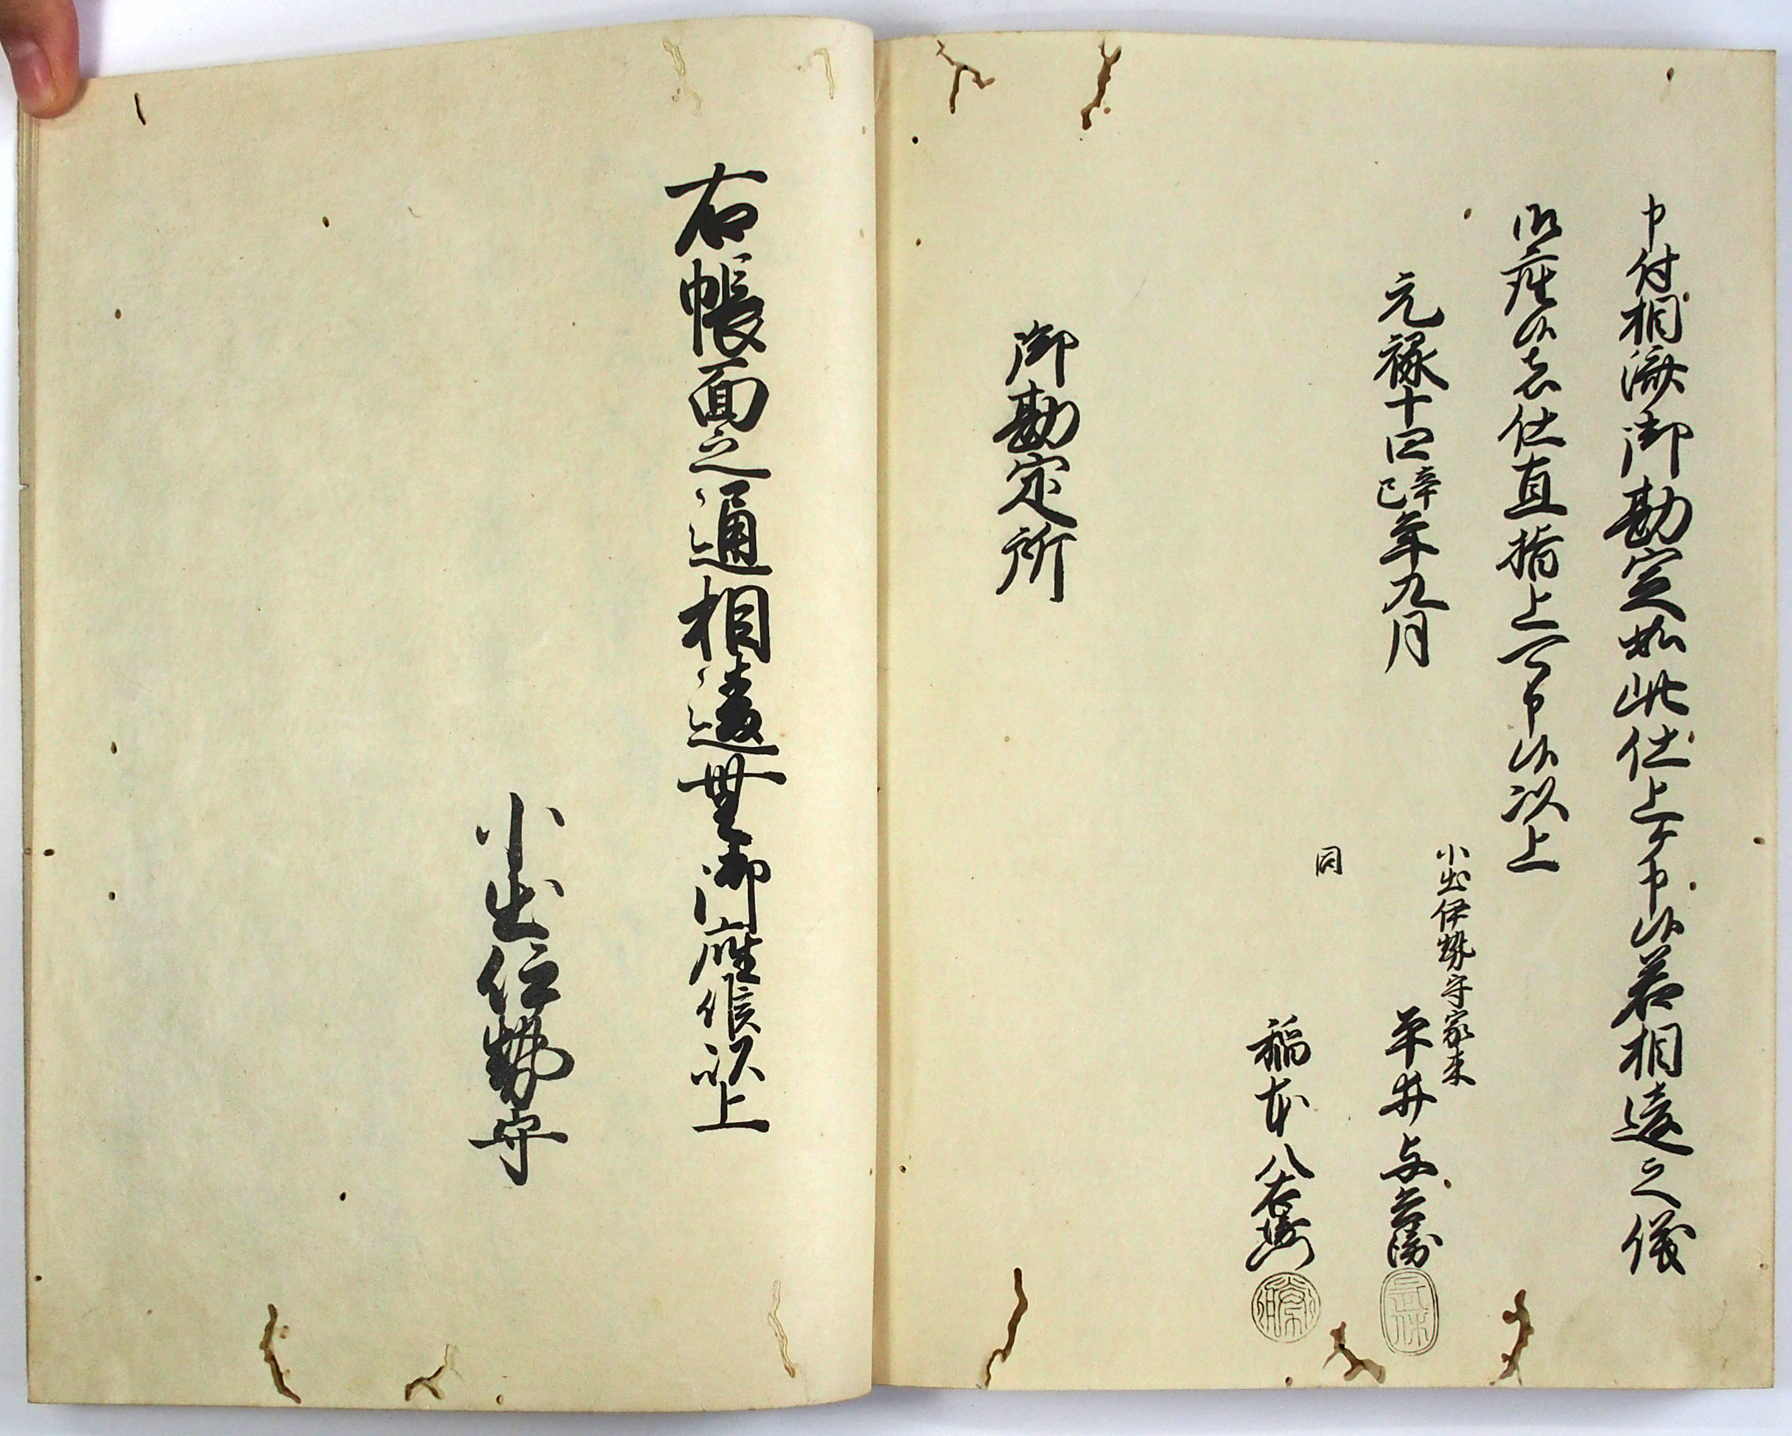 申付相済御勘定如此仕上ケ申候若相違之儀
御座候ハヽ仕直指上可申候以上
元禄十四辛巳年九月
小出伊勢守家来
平井与兵衛
同
稲本八右衛門
御勘定所
右帳面之通相違無御座候以上
小出伊勢守